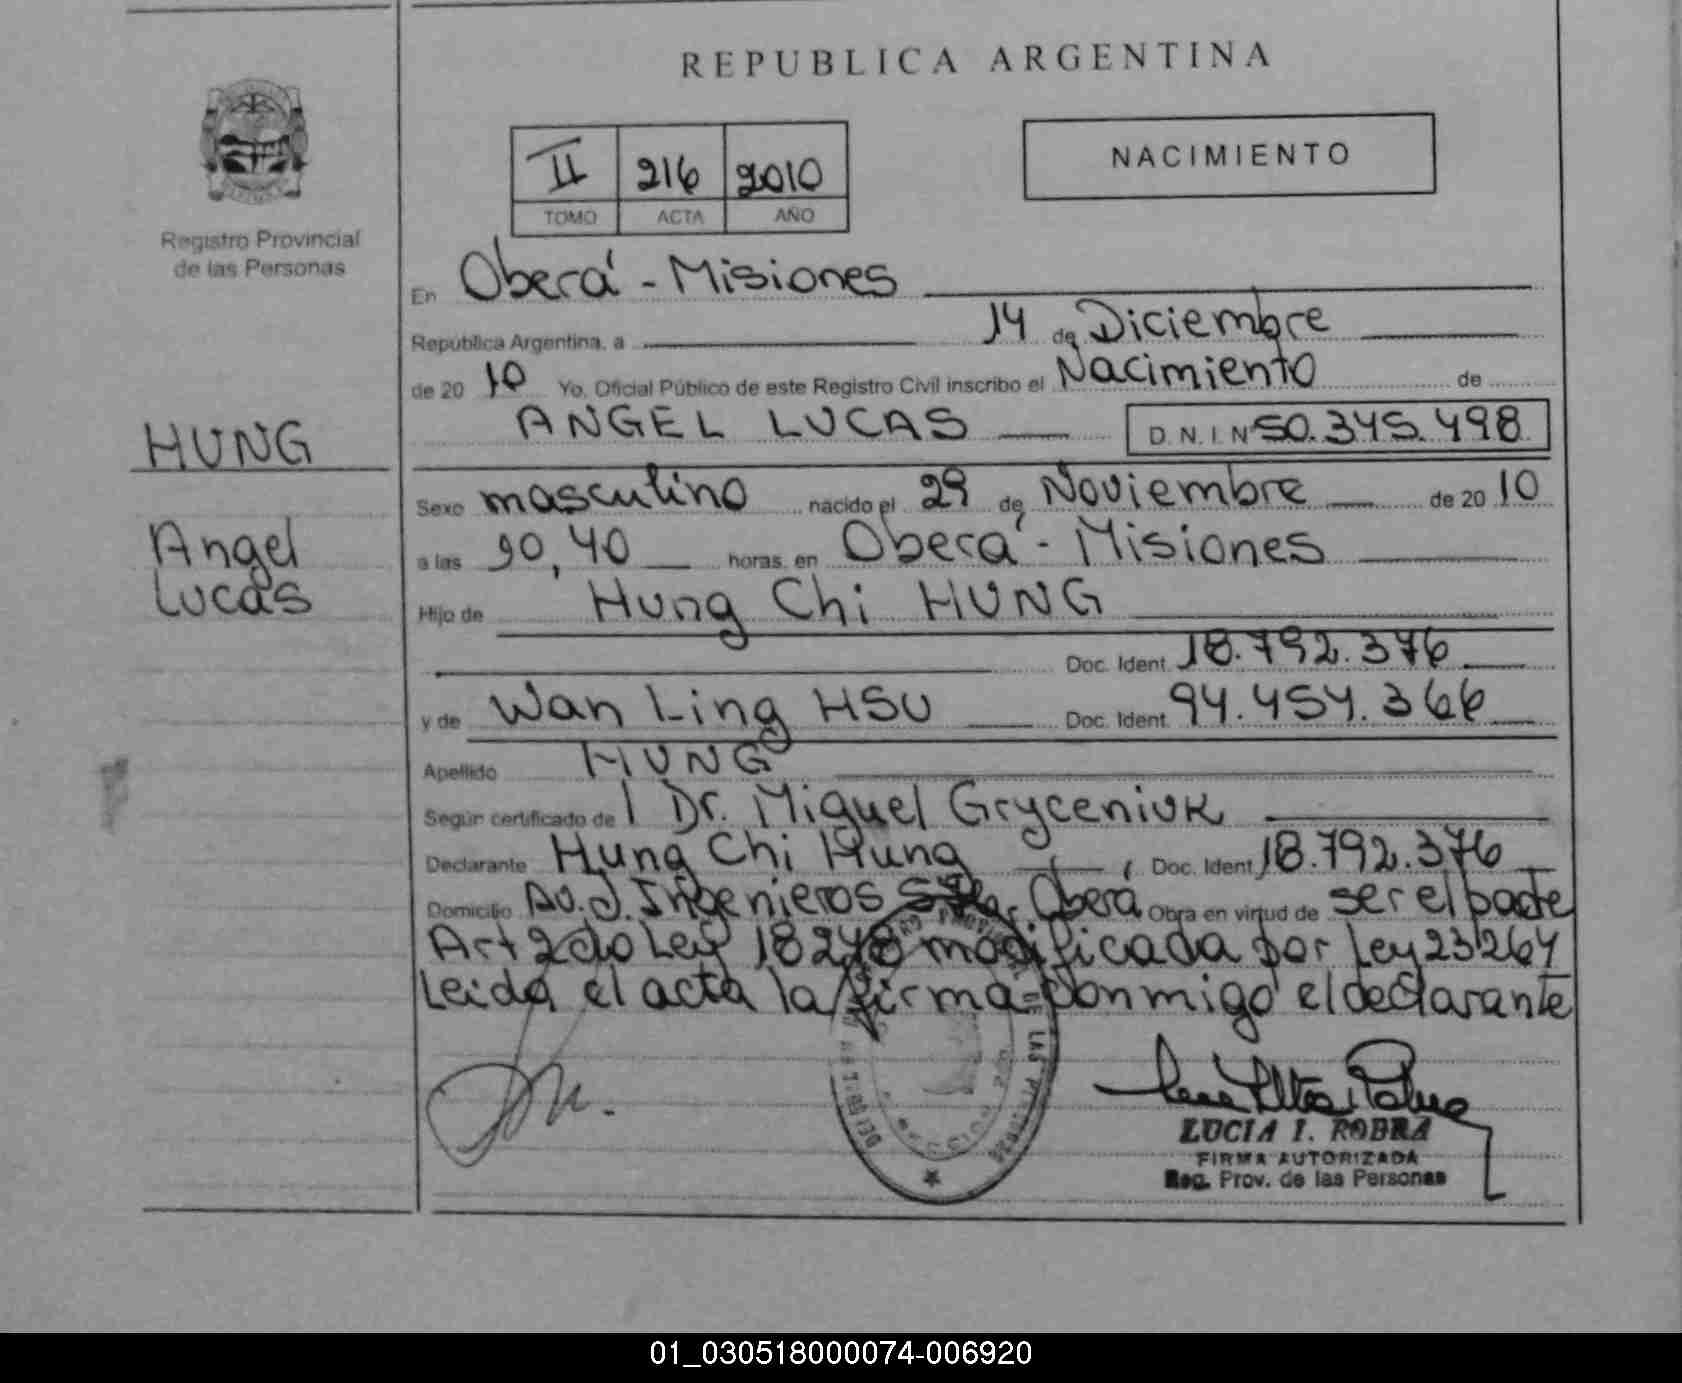 REPUBLICA ARGENTINA
NACIMIENTO
II 216 2010
TOMO ACTA AÑO
Registro Provincial
de las Personas
HUNG
Angel
Lucas
En Oberá - Misiones
República Argentina, a 14 de Diciembre
de 20 10 Yo, Oficial Público de este Registro Civil inscribo el Nacimiento de
ANGEL LUCAS D.N.I. Nº 50.345.498
Sexo masculino nacido el 29 de Noviembre de 20 10
a las 10,40 horas, en Oberá - Misiones
Hijo de Hung Chi HUNG
Doc. Ident. 18.792.376
y de Wan Ling HSU Doc. Ident. 94.454.366
Apellido HUNG
Según certificado de l Dr. Miguel Gryceniuk
Declarante Hung Chi Hung Doc. Ident. 18.792.376
Domicilio Av. J. Ingenieros Oberá Obra en virtud de ser el padre
Art 2do Ley 18248 modificada por Ley 23264
Leida el acta la firma conmigo el declarante
LUCIA I. ROBRA
FIRMA AUTORIZADA
Reg. Prov. de las Personas
01_030518000074-006920